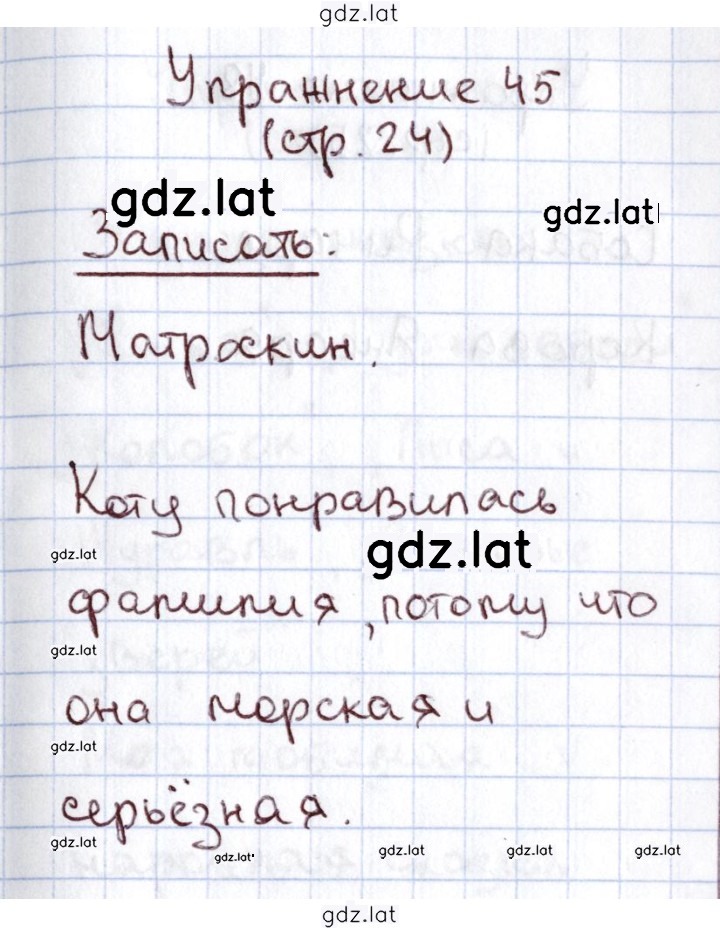 gdz.lat
Упражнение 45
(стр. 24)
gdz.lat
gdz.lat
Записать:
Матроскин.
Коту понравилась
gdz.lat
gdz.lat
фамилия, потому что
gdz.lat
она морская и
gdz.lat
серьёзная.
gdz.lat
gdz.lat
gdz.lat
gdz.lat
gdz.lat
gdz.lat